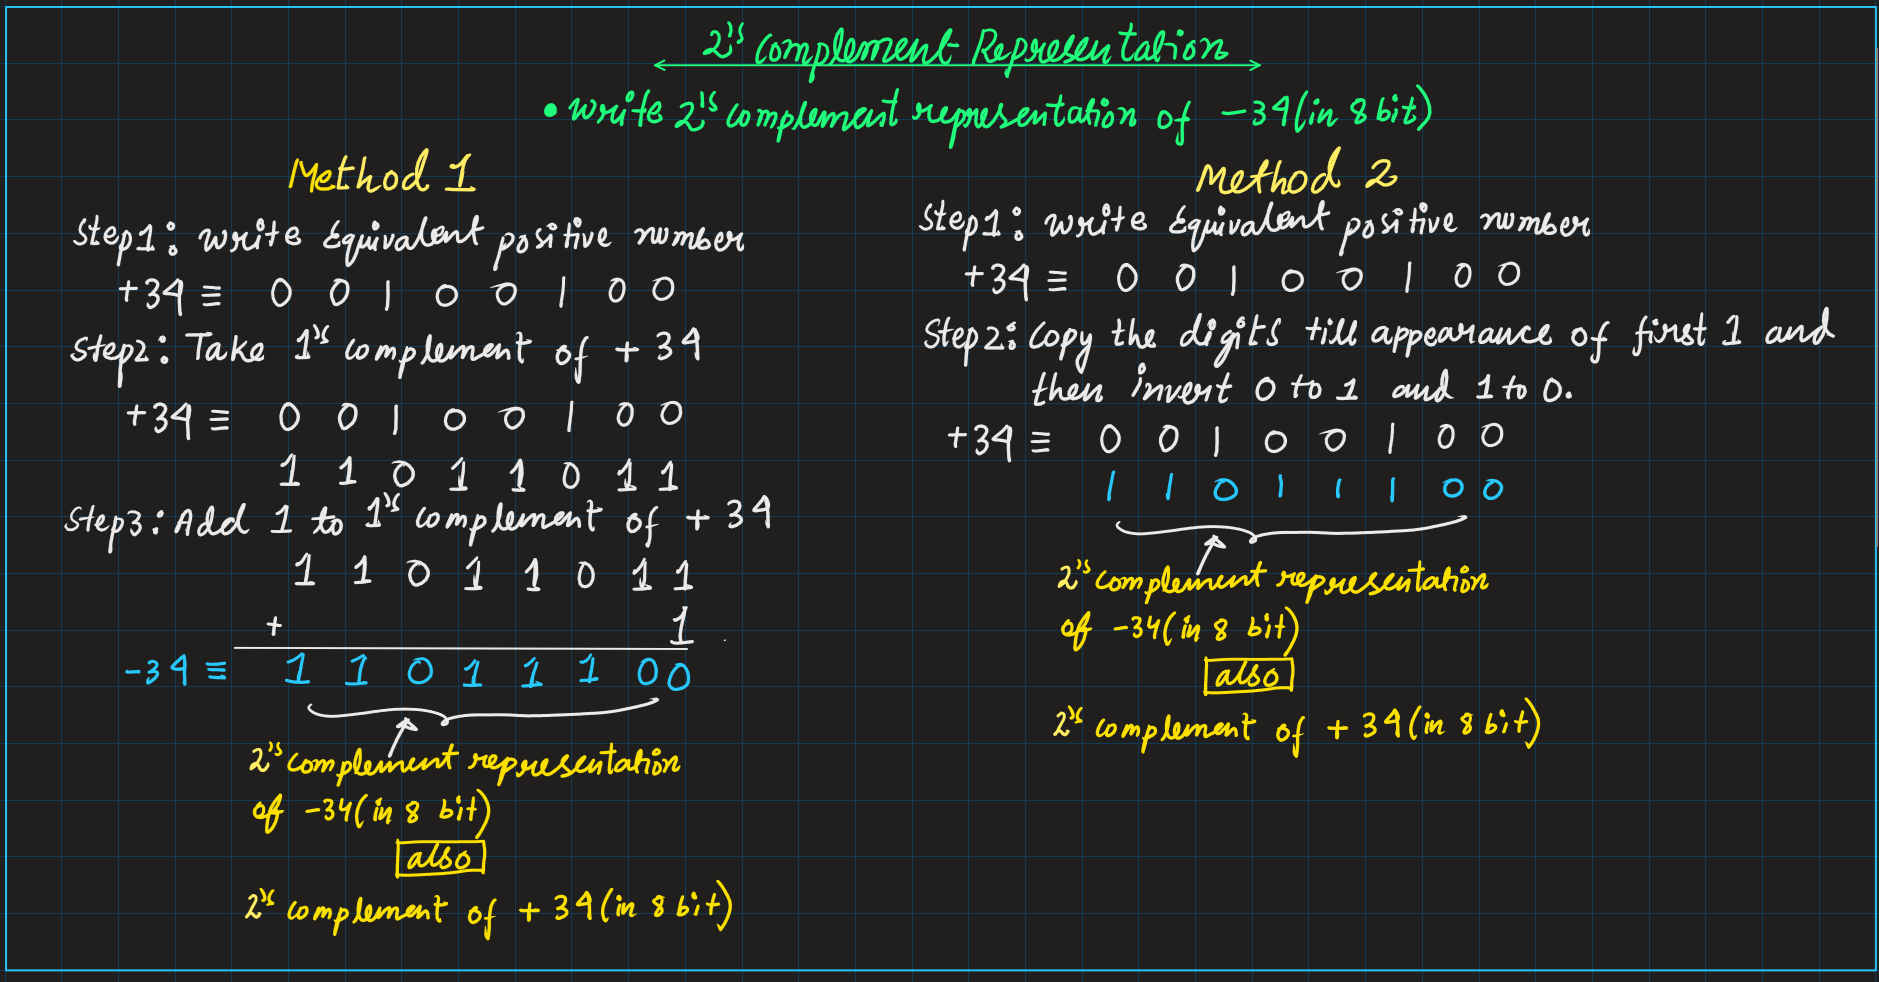 2's Complement Representation
• write 2's complement representation of -34(in 8 bit)
Method 1
Step1: write Equivalent positive number
+34 ≡ 0 0 1 0 0 1 0 0
Step2: Take 1's complement of + 34
+34 ≡ 0 0 1 0 0 1 0 0
1 1 0 1 1 0 1 1
Step3: Add 1 to 1's complement of + 34
1 1 0 1 1 0 1 1
+ 1
-34 ≡ 1 1 0 1 1 1 0 0
2's complement representation
of -34(in 8 bit)
also
2's complement of + 34(in 8 bit)
Method 2
Step1: write Equivalent positive number
+34 ≡ 0 0 1 0 0 1 0 0
Step2: Copy the digits till appearance of first 1 and
then invert 0 to 1 and 1 to 0.
+34 ≡ 0 0 1 0 0 1 0 0
1 1 0 1 1 1 0 0
2's complement representation
of -34(in 8 bit)
also
2's complement of + 34(in 8 bit)